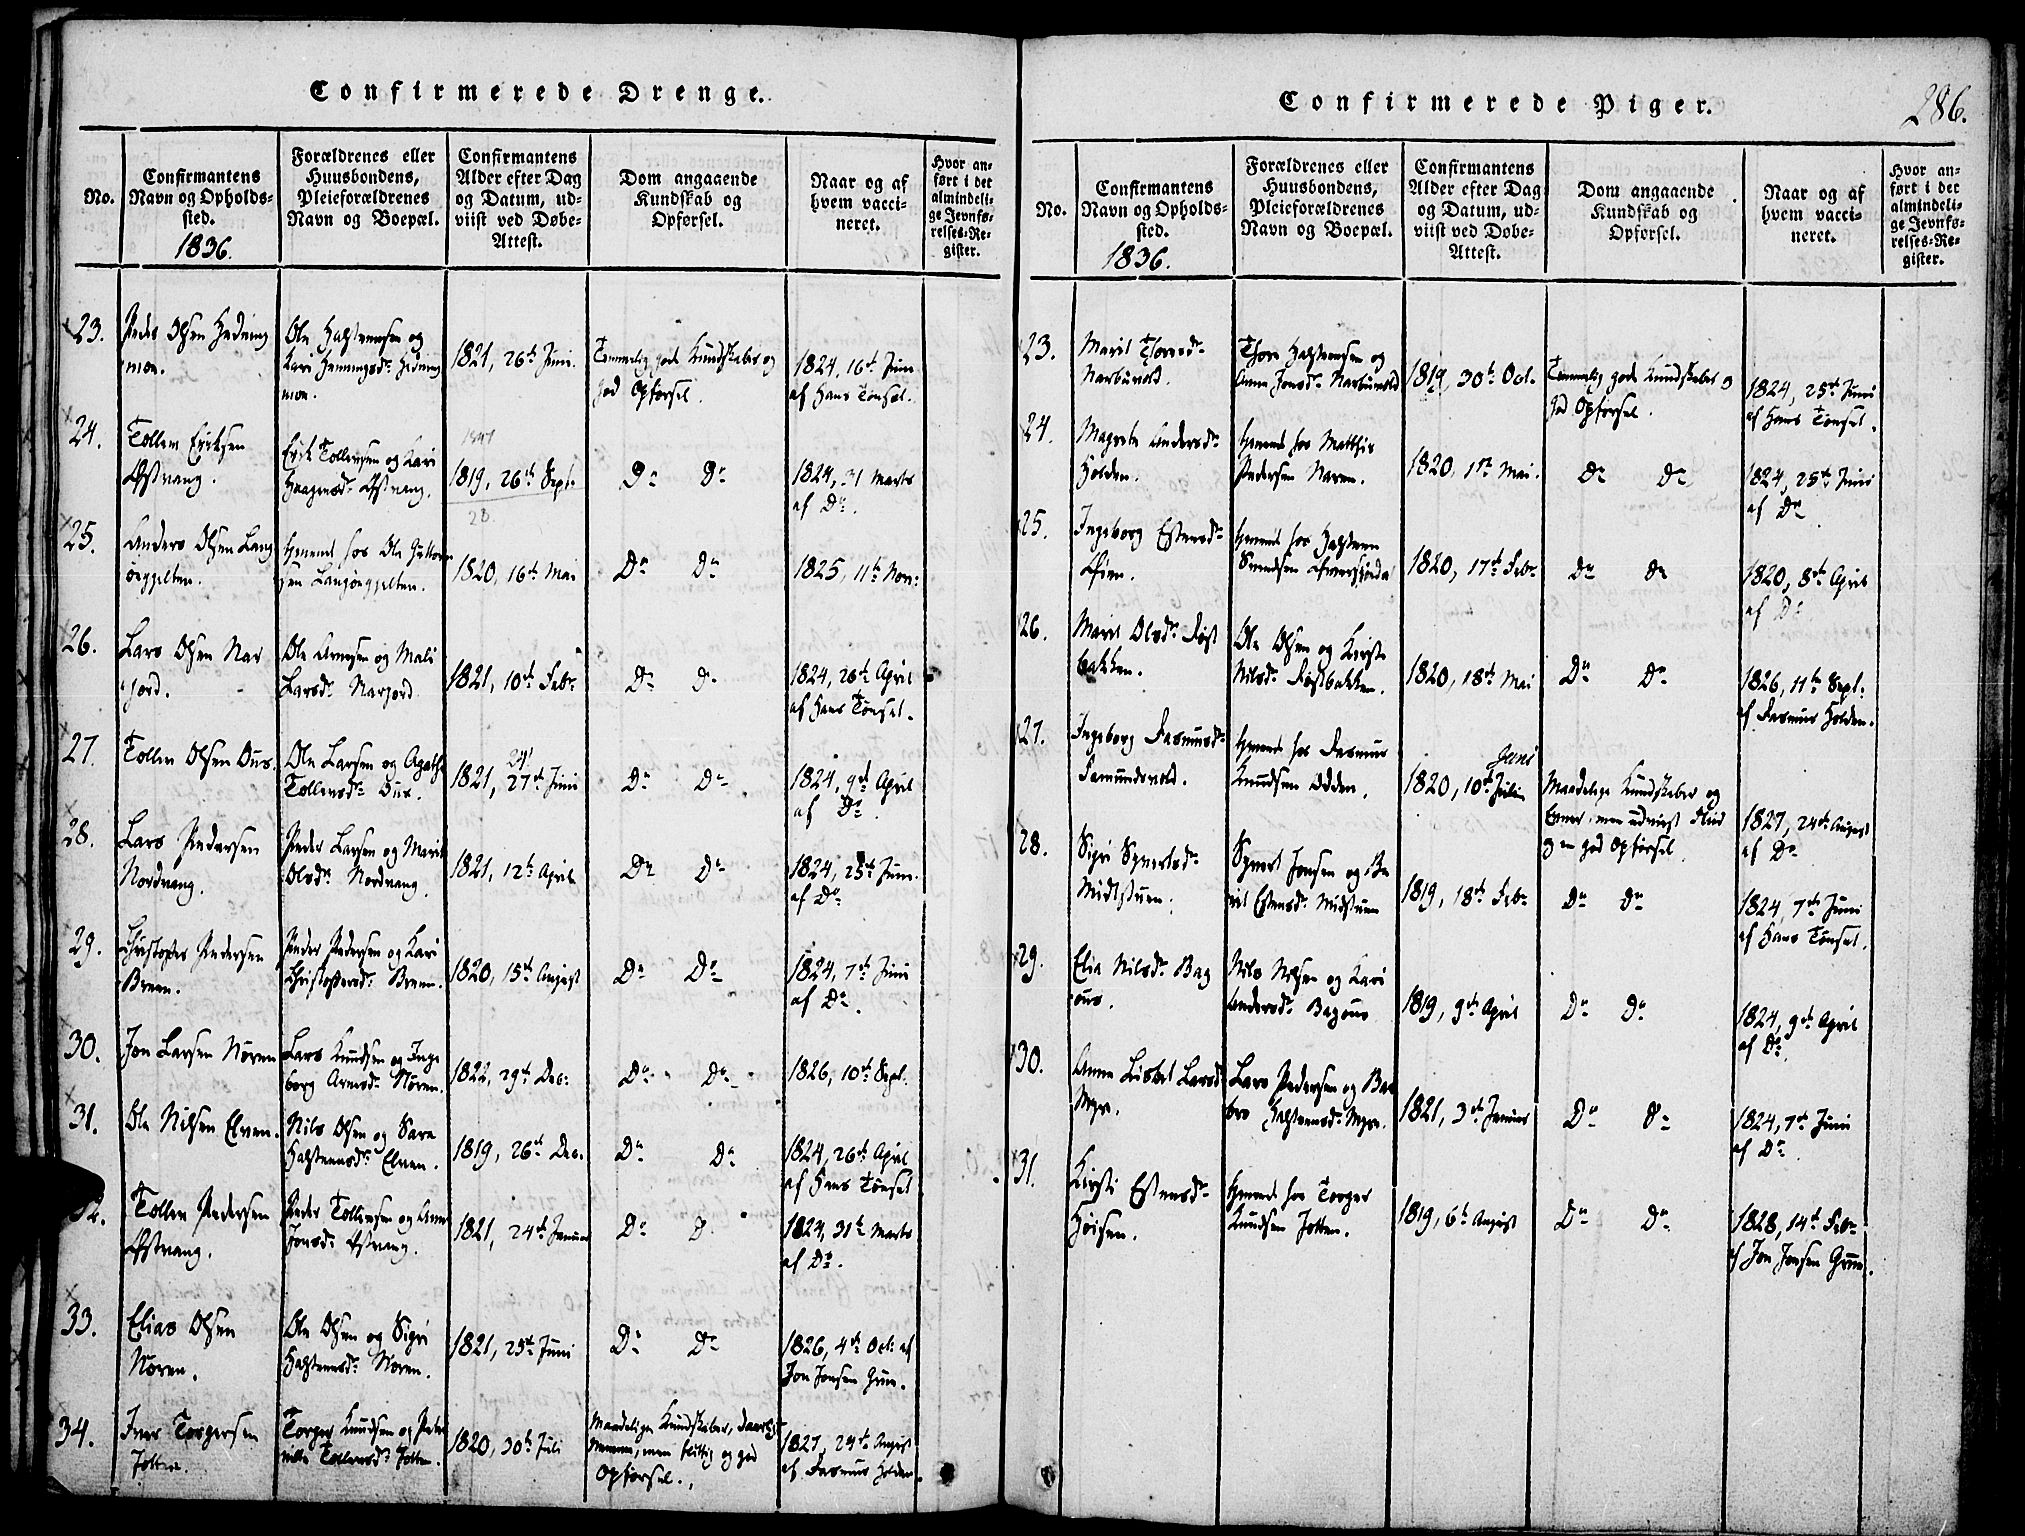 Confirmerede Drenge.
No.
Confirmantens
Navn og Opholds-
sted.
1836.
Forældrenes eller
Huusbondens,
Pleieforældrenes
Navn og Boepæl.
Confirmantens
Alder efter Dag
og Datum, ud-
viist ved Døbe-
Attest.
Dom angaaende
Kundskab og
Opførsel.
Naar og af
hvem vacci-
neret.
Hvor an-
ført i det
almindeli-
ge Jevnfø-
relses-Re-
gister.
23.
Peder Olsen Hedning
moe.
Ole Halstensen og
Kari Henningsd: Hedning
moe.
1821, 26de Juni.
Temmelig gode Kundskaber og
god Opførsel.
1824, 16de Juni
af Hans Tönset.
24.
Tollen Eriksen
Østvang.
Erik Tollensen og Kari
Haagensd: Østvang.
1819, 26de Sept:
28.
Do Do
1824, 31 Marts
af Do.
25.
Anders Olsen Lang
öeggelten.
hjemme hos Ole Guttorm
sen Langöeggelten.
1820, 16de Mai
Do Do
1825, 11te Nov:
26.
Lars Olsen Nar
jord.
Ole Arnesen og Mali
Larsd: Narjord
1821, 10de Febr:
Do Do
1824, 26de April
af Hans Tönset.
27.
Tollen Olsen Ous.
Ole Larsen og Agathe
Tollensd: Ous.
24
1821, 27de Juni
Do Do
1824, 9de April
af Do.
28.
Lars Pedersen
Nordvang.
Peder Larsen og Marit
Olsd: Nordvang.
1821, 12te April
Do Do
1824, 25de Juni.
af Do
29.
Christopher Pedersen
Breen.
Peder Pedersen og Kari
Christophersd: Breen.
1820, 15de August
Do Do
1824, 7de Juni
af Do.
30.
Jon Larsen Nören
Lars Knudsen og Inge
borg Arnesd: Nören.
1822, 29de Dec:
Do Do
1826, 10de Sept.
31.
Ole Nilsen Elven.
Nils Olsen og Sara
Halstensd: Elven.
1819, 26de Dec.
Do Do
1824, 26de April
af Hans Tönset
32.
Tollen Pedersen
Østvang.
Peder Tollensen og Anne
Jonsd: Østvang.
1821, 24de Januar
Do D
1824, 31te Marts
af Do.
33.
Elias Olsen
Nören.
Ole Olsen og Sigri
Halstensd: Nören.
1821, 25de Juni
Do Do
1826, 4de Oct: af
Jon Jonsen Grue.
34.
Iver Torgersen
Jotten.
Torger Knudsen og Peder
nille Tollensd: Jotten.
1820, 30te Juli
Maadelige Kundskaber, daarlig
Nemme, men flittig og god
Opførsel.
1827, 24de August
af Rasmus Holden.
Confirmerede Piger.
286.
No.
Confirmantens
Navn og Opholds-
sted.
1836.
Forældrenes eller
Huusbondens,
Pleieforældrenes
Navn og Boepæl.
Confirmantens
Alder efter Dag
og Datum, ud-
viist ved Døbe-
Attest.
Dom angaaende
Kundskab og
Opførsel.
Naar og af
hvem vacci-
neret.
Hvor an-
ført i det
almindeli-
ge Jevnfø-
relses-Re-
gister.
23.
Marit Thoresd:
Narbuvold.
Thore Halstensen og
Anne Jonsd: Narbuvold
1819, 30te Oct.
Temmelig gode Kundskaber og
god Opførsel.
1824, 25de Juni
af Hans Tönset.
24.
Magrete Andersd:
Holden.
hjemme hos Matthis
Pedersen Naren.
1820, 1ste Mai.
Do Do
1824, 25de Juni
af Do
25.
Ingeborg Estensd:
Øien.
hjemme hos Halsten
Svendsen
1820, 17de Febr:
Do Do
1820, 8de April
af Do
26.
Marit Olsd: Røst
bakken.
Ole Olsen og Kirste
Nilsd: Røstbakken.
1820, 18de Mai
Do Do
1826, 11te Sept:
af Rasmus Holden.
27.
Ingeborg Rasmusd:
Femundsvold.
hjemme hos Rasmus
Knudsen Odden.
Juni
1820, 10de Julii
Maadelige Kundskaber og
Evner, men udviist Fliid
og en god Opførsel.
1827, 24de August
af Do
28.
Sigri Syvertsd:
Midtstuen.
Syvert Jonsen og Be
rit Estensd: Midstuen
1819, 18de Febr
Do Do
1824, 7de Juni
af Hans Tönset.
29.
Elia Nilsd: Bag
ous.
Nils Nilsen og Kari
Andersd: Bagous
1819, 9de April
Do Do
1824, 9de April
af Do.
30.
Anne Lisbet Larsd:
Myre.
Lars Pedersen og Bar
bro Halstensd: Myre.
1821, 3de Januar
Do Do
1824, 7de Juni
af Do.
31.
Kirsti Estensd:
Höisen.
hjemme hos Torger
Knudsen Jotten.
1819, 6te August
Do Do
1828, 14de Febr
af Jon Jonsen Grue.